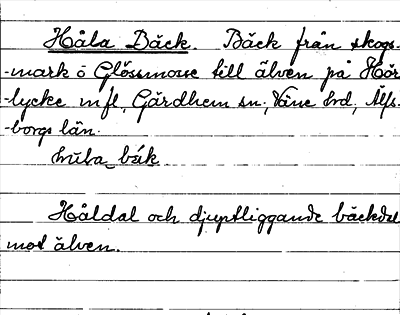 Håla Bäck. Bäck från skogs-
-mark ö Glössmosse till älven på Hör
-lycke m fl, Gärdhem sn, Väne hd, Älfs-
-borgs län.
bäk
Håldal och djuptliggande bäckdal
mot älven.